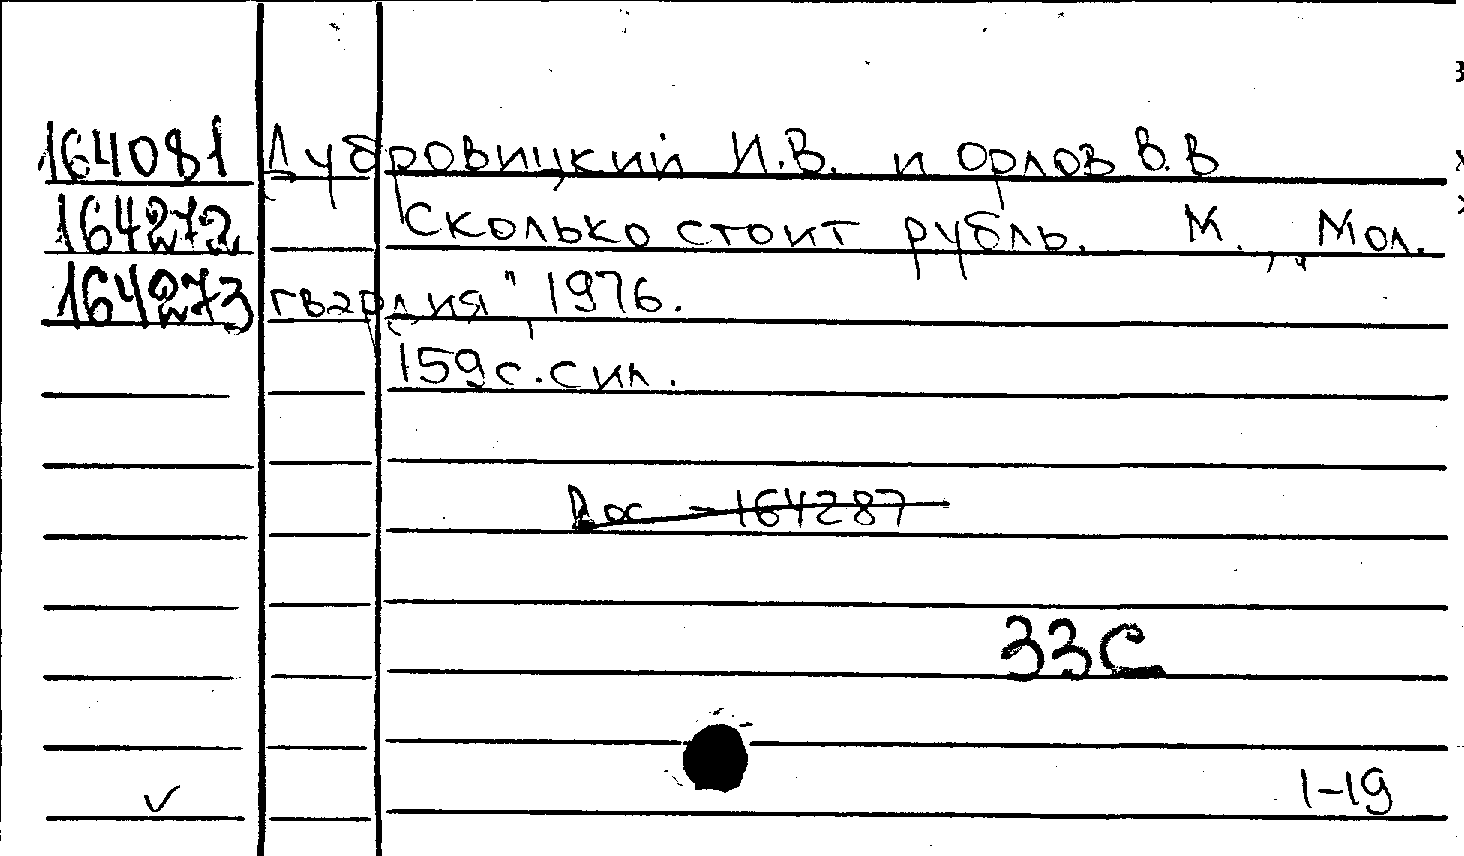 164081 Дубровицкий И.В. и Орлов В.В
164272 Сколько стоит рубль. М., „Мол.
164273 гвардия" 1976.
159с. с ил.
Дос - 164287
33С
1-19